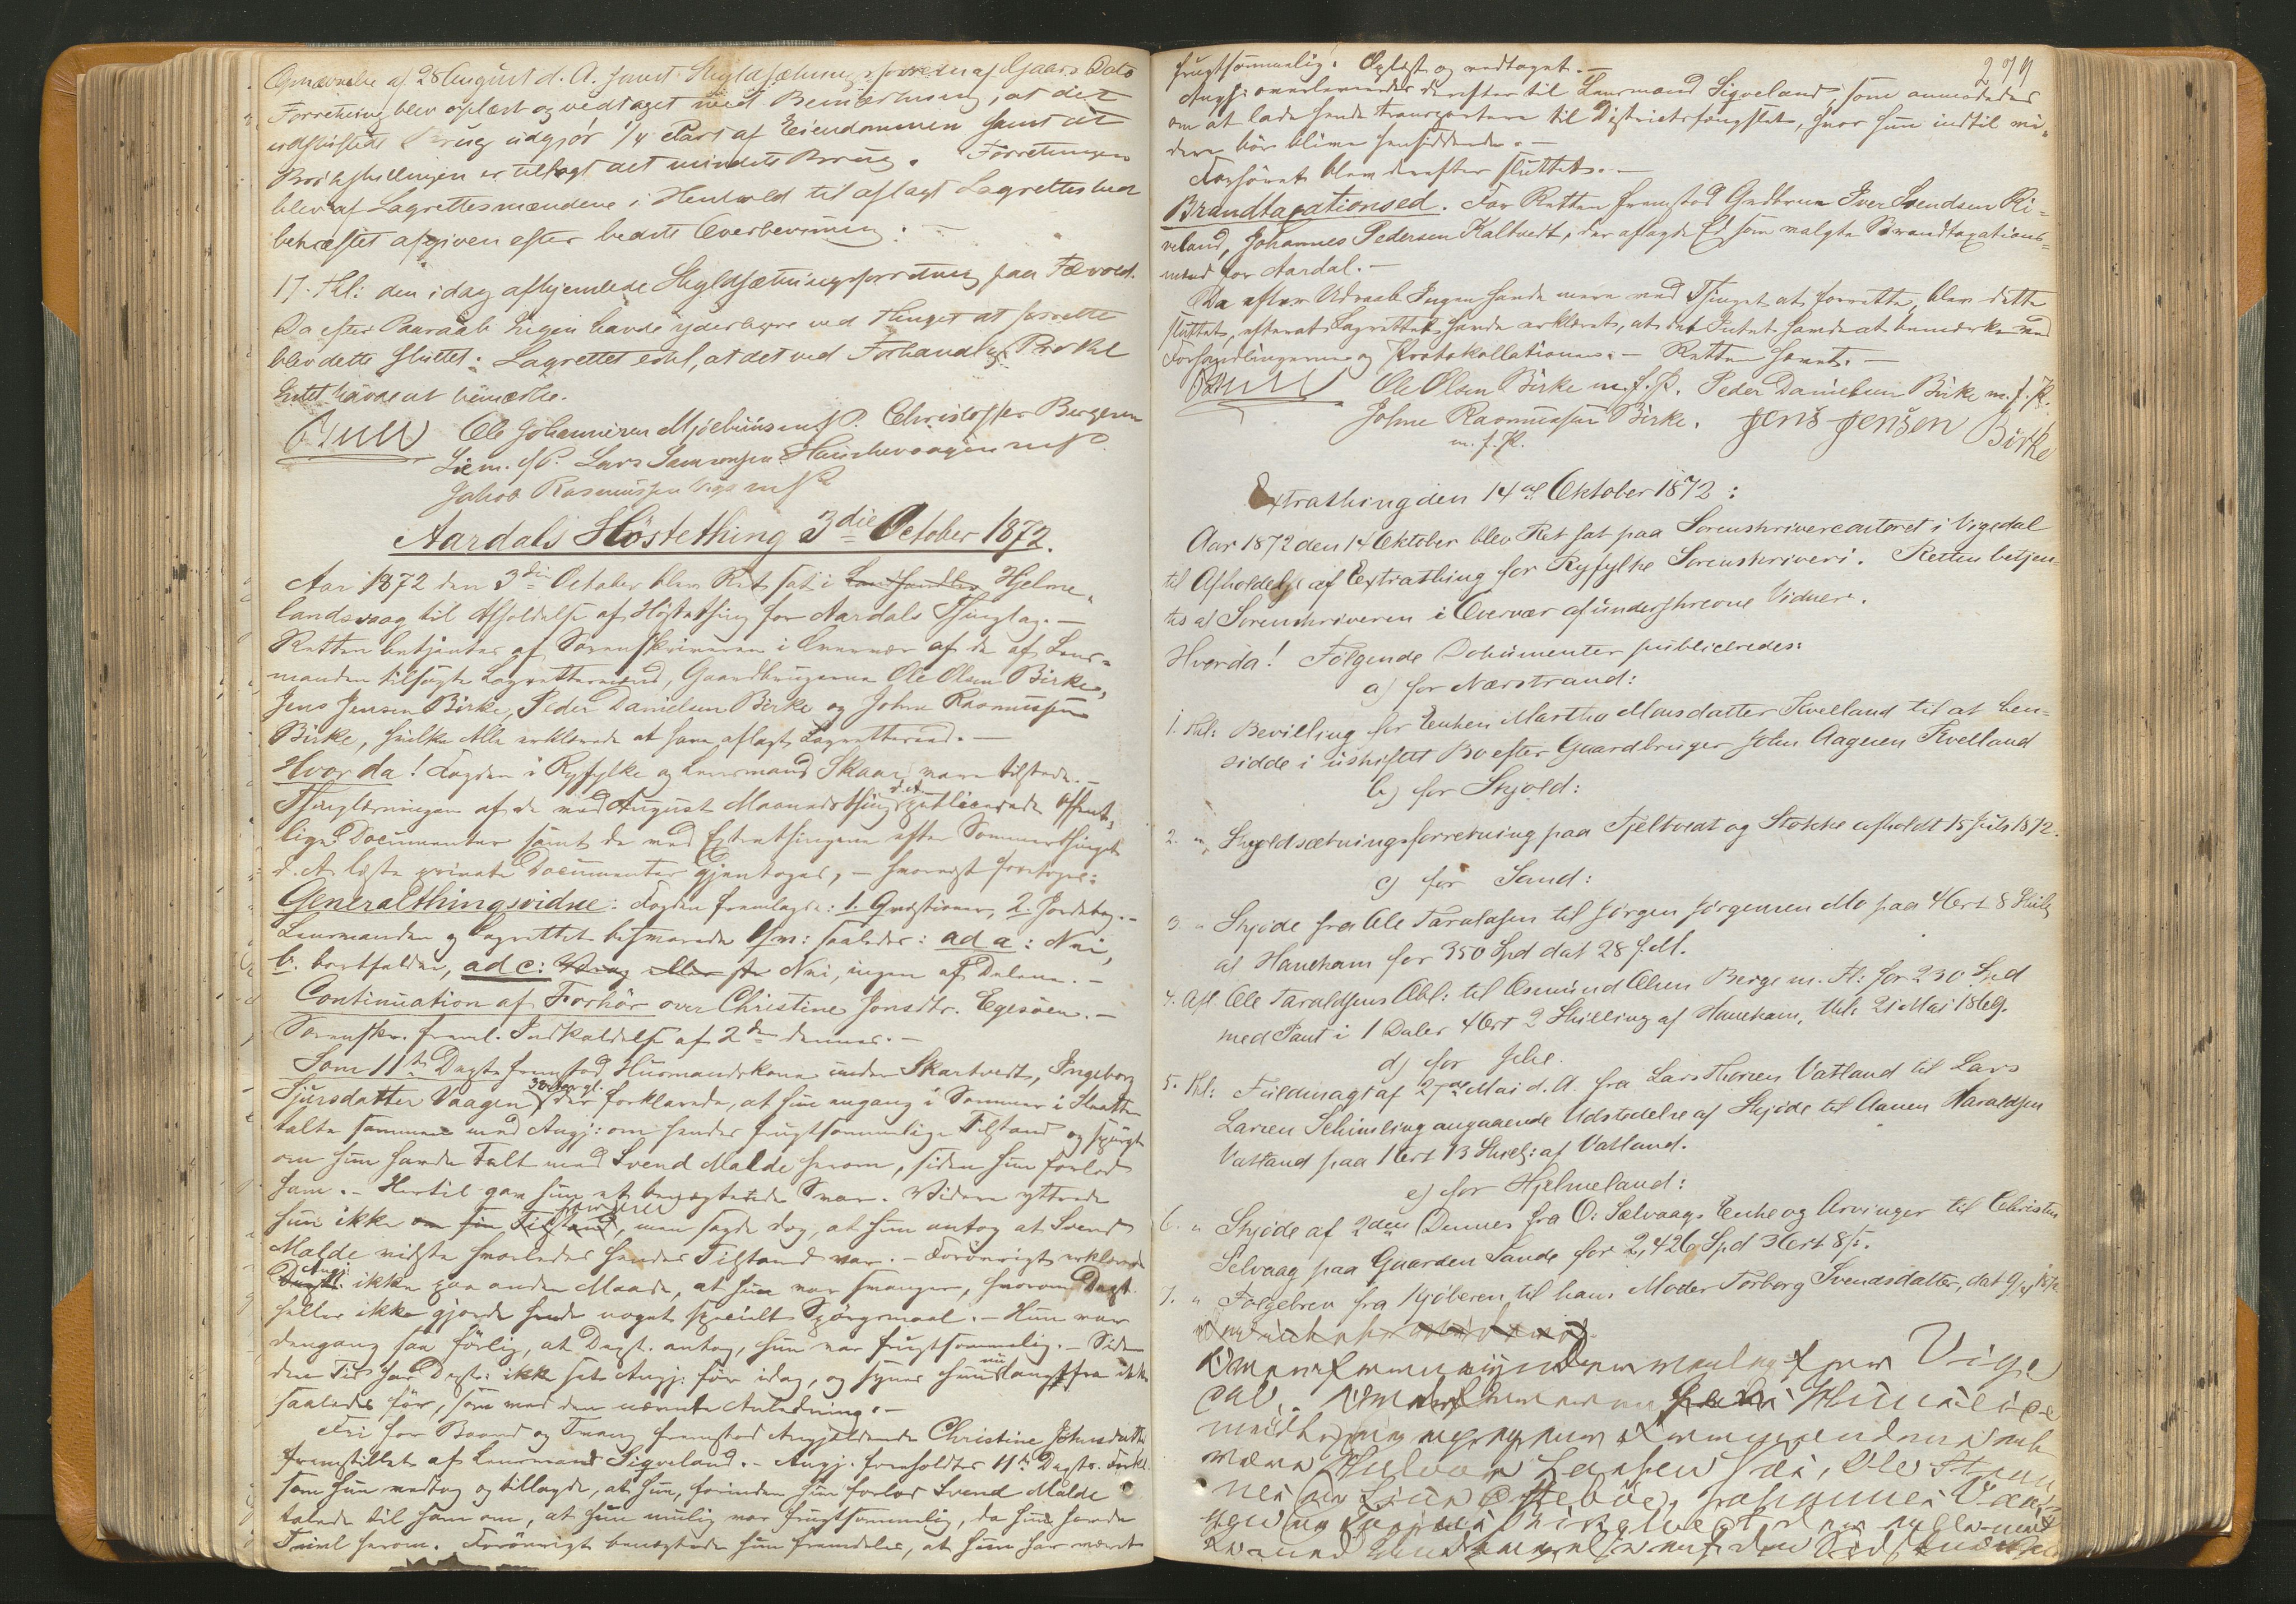 Opnævnelse af 28 August d. A. samt Skyldsætningsforretn af Gaars Dato
Forretning blev oplæst og vedtaget med Bemærkning, at det
udskiftede Brug udgjør 1/4 Part af Eiendommen samt at
Brökskillingen er tillagt det mindste Brug. Forretningen
blev af Lagrettesmændene i Henhold til aflagt Lagrettes Eed
bekræftet afgiven efter bedste Overbeviisning. —
17. Thl: den idag afhjemlede Skyldsætningsforretning paa
Da efter Paaraab Ingen havde yderligere ved Thinget at forrette
blev dette sluttet. Lagrettet erkl, at det ved Forhandlg: Protkl
Intet havde at bemærke.
Bull Ole Johannesen Mjölhuus m.f.P. Christoffer Bergesen
Lie m.f.P. Lars Samsonsen m.f.P.
Jakob Rasmussen m.f.P.
Aardals Höstething 3die October 1872.
Aar 1872 den 3die October blev Ret sat i Landhandler Hjelme-
landsvaag til Afholdelse af Høstething for Aardals Thinglag. —
Retten betjentes af Sorenskriveren i Overvær af de af Lens-
manden tilsagte Lagrettesmænd, Gaardbrugerne Ole Olsen Birke,
Jens Jensen Birke, Peder Danielsen Birke og Johne Rasmussen
Birke, hvilke Alle erklærede at have aflagt Lagretteseed. —
Hvor da! Fogden i Ryfylke og Lensmand Skaar vare tilstede. —
Thinglæsningen af de ved August Maanedsthing d. A. publicerede offent-
lige Documenter samt de ved Extrathingene efter Sommerthinget
d. A. læste private Documenter gjentoges, — hvornæst foretoges:
Generalthingsvidne: Fogden fremlagde: 1. Qvæstioner, 2. Jordebog. —
Lensmanden og Lagrettet besvarede Spm: saaledes: ad a: Nei,
b. bortfalder, ad c: Nei, ingen af Delene. —
Continuation af Forhör over Christine Jonsdtr. Egesöen. —
Sorenskr. freml. Indkaldelse af 2den dennes. —
Som 11te Dagste fremstod Huusmandskone under Skartvedt, Ingeborg
Sjursdatter Vaagen, der forklarede, at hun engang i Sommer i Slaatten
talte sammen med Angj: om hendes frugtsommelige Tilstand og spurgte
om hun havde talt med Svend Malde herom, siden hun forlod
ham. — Hertil gav hun et benægtende Svar. Videre yttrede
hun ikke om sin Tilstand, men sagde dog, at hun antog at Svend
Malde vidste hvorledes hendes Tilstand var. — Forövrigt erklærede
Angj: ikke paa anden Maade, at hun var svanger, hvorom Dagst.
heller ikke gjorde hende noget specielt Spörgsmaal. — Hun var
dengang saa förlig, at Dagst. antog, hun var frugtsommelig. — Siden
den Tid har Dagst: ikke seet Angj: för idag, og synes hun nu langtfra ikke
saaledes för, som ved den nævnte Anledning. —
Fri for Baand og Tvang fremstod Angjældende Christine Johnsdatter
fremstillet af Lensmand Sigveland. — Angj: foreholdtes 11te Dagst. Forkl.
som hun vedtog og tillagde, at hun, forinden hun forlod Svend Malde
talede til ham om, at hun mulig var frugtsommelig, da hun havde
Tvivl herom. Forövrigt benægtede hun fremdeles, at hun har været
279
frugtsommelig. Oplæst og vedtaget. —
Angj: overleveredes derefter til Lensmand Sigveland, som anmodedes
om at lade hende transportere til Districtsfængslet, hvor hun indtil vi-
dere bör blive hensiddende. —
Forhöret blev derefter sluttet. —
Brandtaxationsed. For Retten fremstod Gaardbrn Iver Svendsen Ri-
veland, Johannes Pedersen Kaltvedt, der aflagde Ed som valgte Brandtaxations-
mænd for Aardal. —
Da efter Udraab Ingen havde mere ved Thinget at forrette, blev dette
sluttet, efterat Lagrettet havde erklæret, at det Intet havde at bemærke ved
Forhandlingerne og Protokollationen. — Retten hævet. —
Bull Ole Olsen Birke m.f.P. Peder Danielsen Birke m.f.P.
Johne Rasmussen Birke. Jens Jensen Birke
m.f.P.
Extrathing den 14de Oktober 1872:
Aar 1872 den 14 Oktober blev Ret sat paa Sorenskrivercontoret i Vigedal
til Afholdelse af Extrathing for Ryfylke Sorenskriveri. Retten betjen-
tes af Sorenskriveren i Overvær af underskrevne Vidner.
Hvorda! Følgende Dokumenter publiceredes:
a) for Nærstrand:
1. Thl: Bevilling for Enken Martha Monsdatter Kvelland til at hen-
sidde i uskiftet Bo efter Gaardbruger John Aagesen Kvelland
b) for Skjold:
2. „ Skyldsætningsforretning paa Tjeltveat og Stokke afholdt 15 Juli 1872.
c) for Sand:
3. „ Skjöde fra Ole Taraldsen til Jörgen Jörgensen Mo paa 4 Ort 8 Skill
af Haneham for 350 Spd dat 28 f.M.
4. Afl. Ole Taraldsens Obl: til Osmund Olsen Berge m. Fl: for 230 Spd
med Pant i 1 Daler 4 Ort 2 Skilling af Haneham, thl: 21 Mai 1869.
d) for Jelse.
5. Thl: Fuldmagt af 27de Mai d. A. fra Lars Thorsen Vatland til Lars
Larsen Schimling angaaende Udstedelse af Skjöde til Aanen Haraldsen
Vatland paa 1 Ort 13 Skill: af Vatland.
e) for Hjelmeland:
6. „ Skjöde af 2den Dennes fra O: Sælvaags Enke og Arvinger til Christen
Selvaag paa Gaarden Sande for 2,426 Spd 3 Ort 8 s.
7. „ Folgebrev fra Kjöberen til hans Moder Torborg Svendsdatter, dat
Vige
Larsen
Johannes